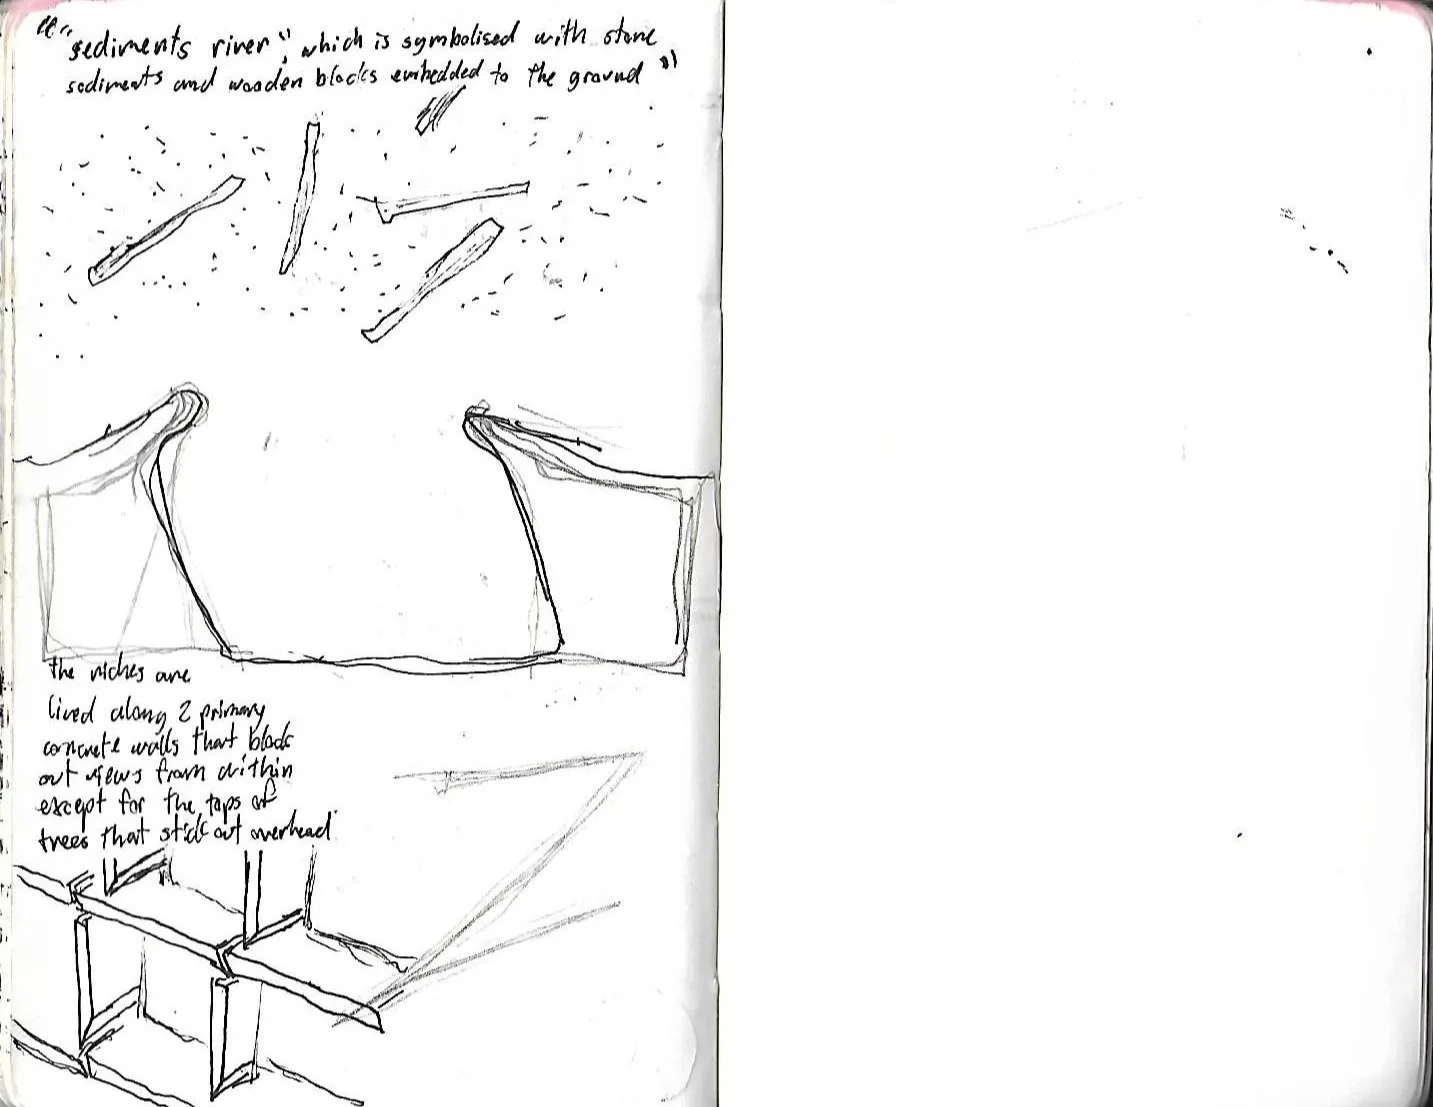 ““sediments river”, which is symbolised with stone
sediments and wooden blocks embedded to the ground”
the niches are
lived along 2 primary
concrete walls that block
out views from within
except for the tops of
trees that stick out overhead